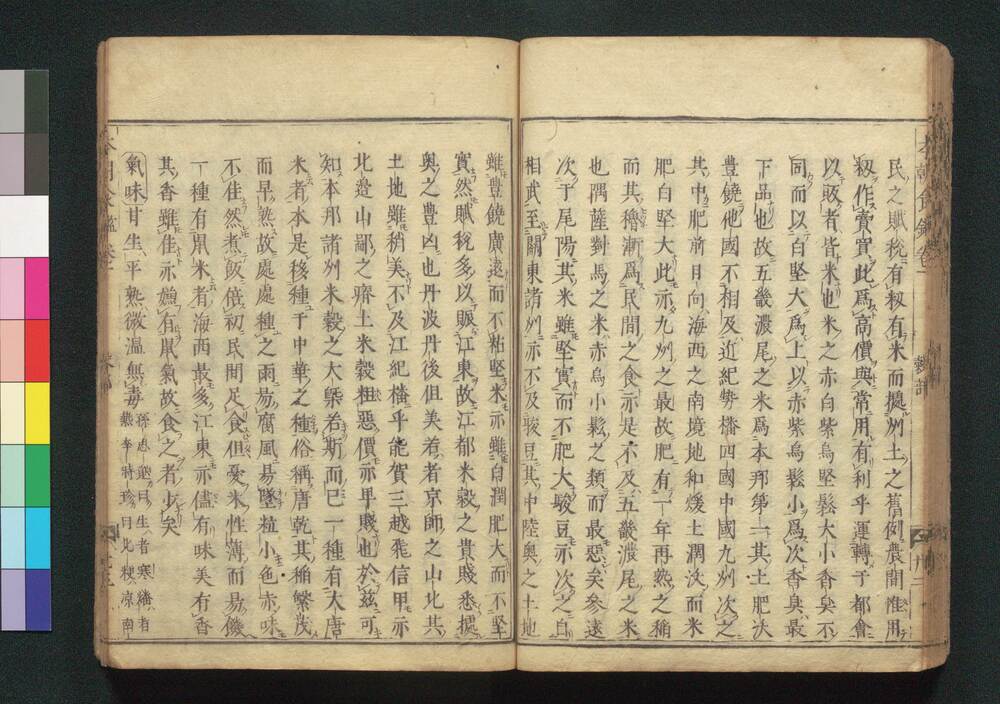 民之賦稅有籾有米而據州土之舊例農間惟用
籾作實實此爲高價與常用有利乎運轉于都會
以販者皆米也米之赤白紫烏堅鬆大小香臭不
同而以白堅大爲上以赤紫烏鬆小爲次香臭最
下品也故五畿濃尾之米爲本邦第一其土肥汰
豐饒他國不相及近紀勢播四國中國九州次之
其中肥前日向海西之南境地和煖土潤汝而米
肥白堅大此亦九州之最故肥有一年再熟之稻
而其穭漸爲民間之食亦是不及五畿濃尾之米
也隅薩對馬之米赤烏小鬆之類而最惡矣參遠
次于尾陽其米雖堅實而不肥大駿豆亦次之自
相武至關東諸州亦不及駿豆其中陸奥之土地
雖豐饒廣遠而不粘堅米亦雖白潤肥大而不堅
實然賦稅多以販江東故江都米穀之貴賤悉據
奥之豐凶也丹波丹後但美若者京師之山北其
土地雖稍美不及江紀播乎能賀三越飛信甲亦
北邉山鄙之瘠土米穀粗惡價亦平賤也於茲可
知本邦諸州米穀之大槩若斯而已一種有大唐
米者本是移種于中華之種俗稱唐乾其稲繁茂
而早熟故處處種之雨易腐風易墜粒小色赤味
不佳然煮飯倍初民間足食但憂米性薄而易饑
一種有鼠米者海西最多江東亦儘有味美有香
其香雖佳亦嫌有鼠氣故食之者少矣
氣味甘生平熟微温無毒
孫思邈曰生者寒燔者
熱李時珍曰北粳凉南